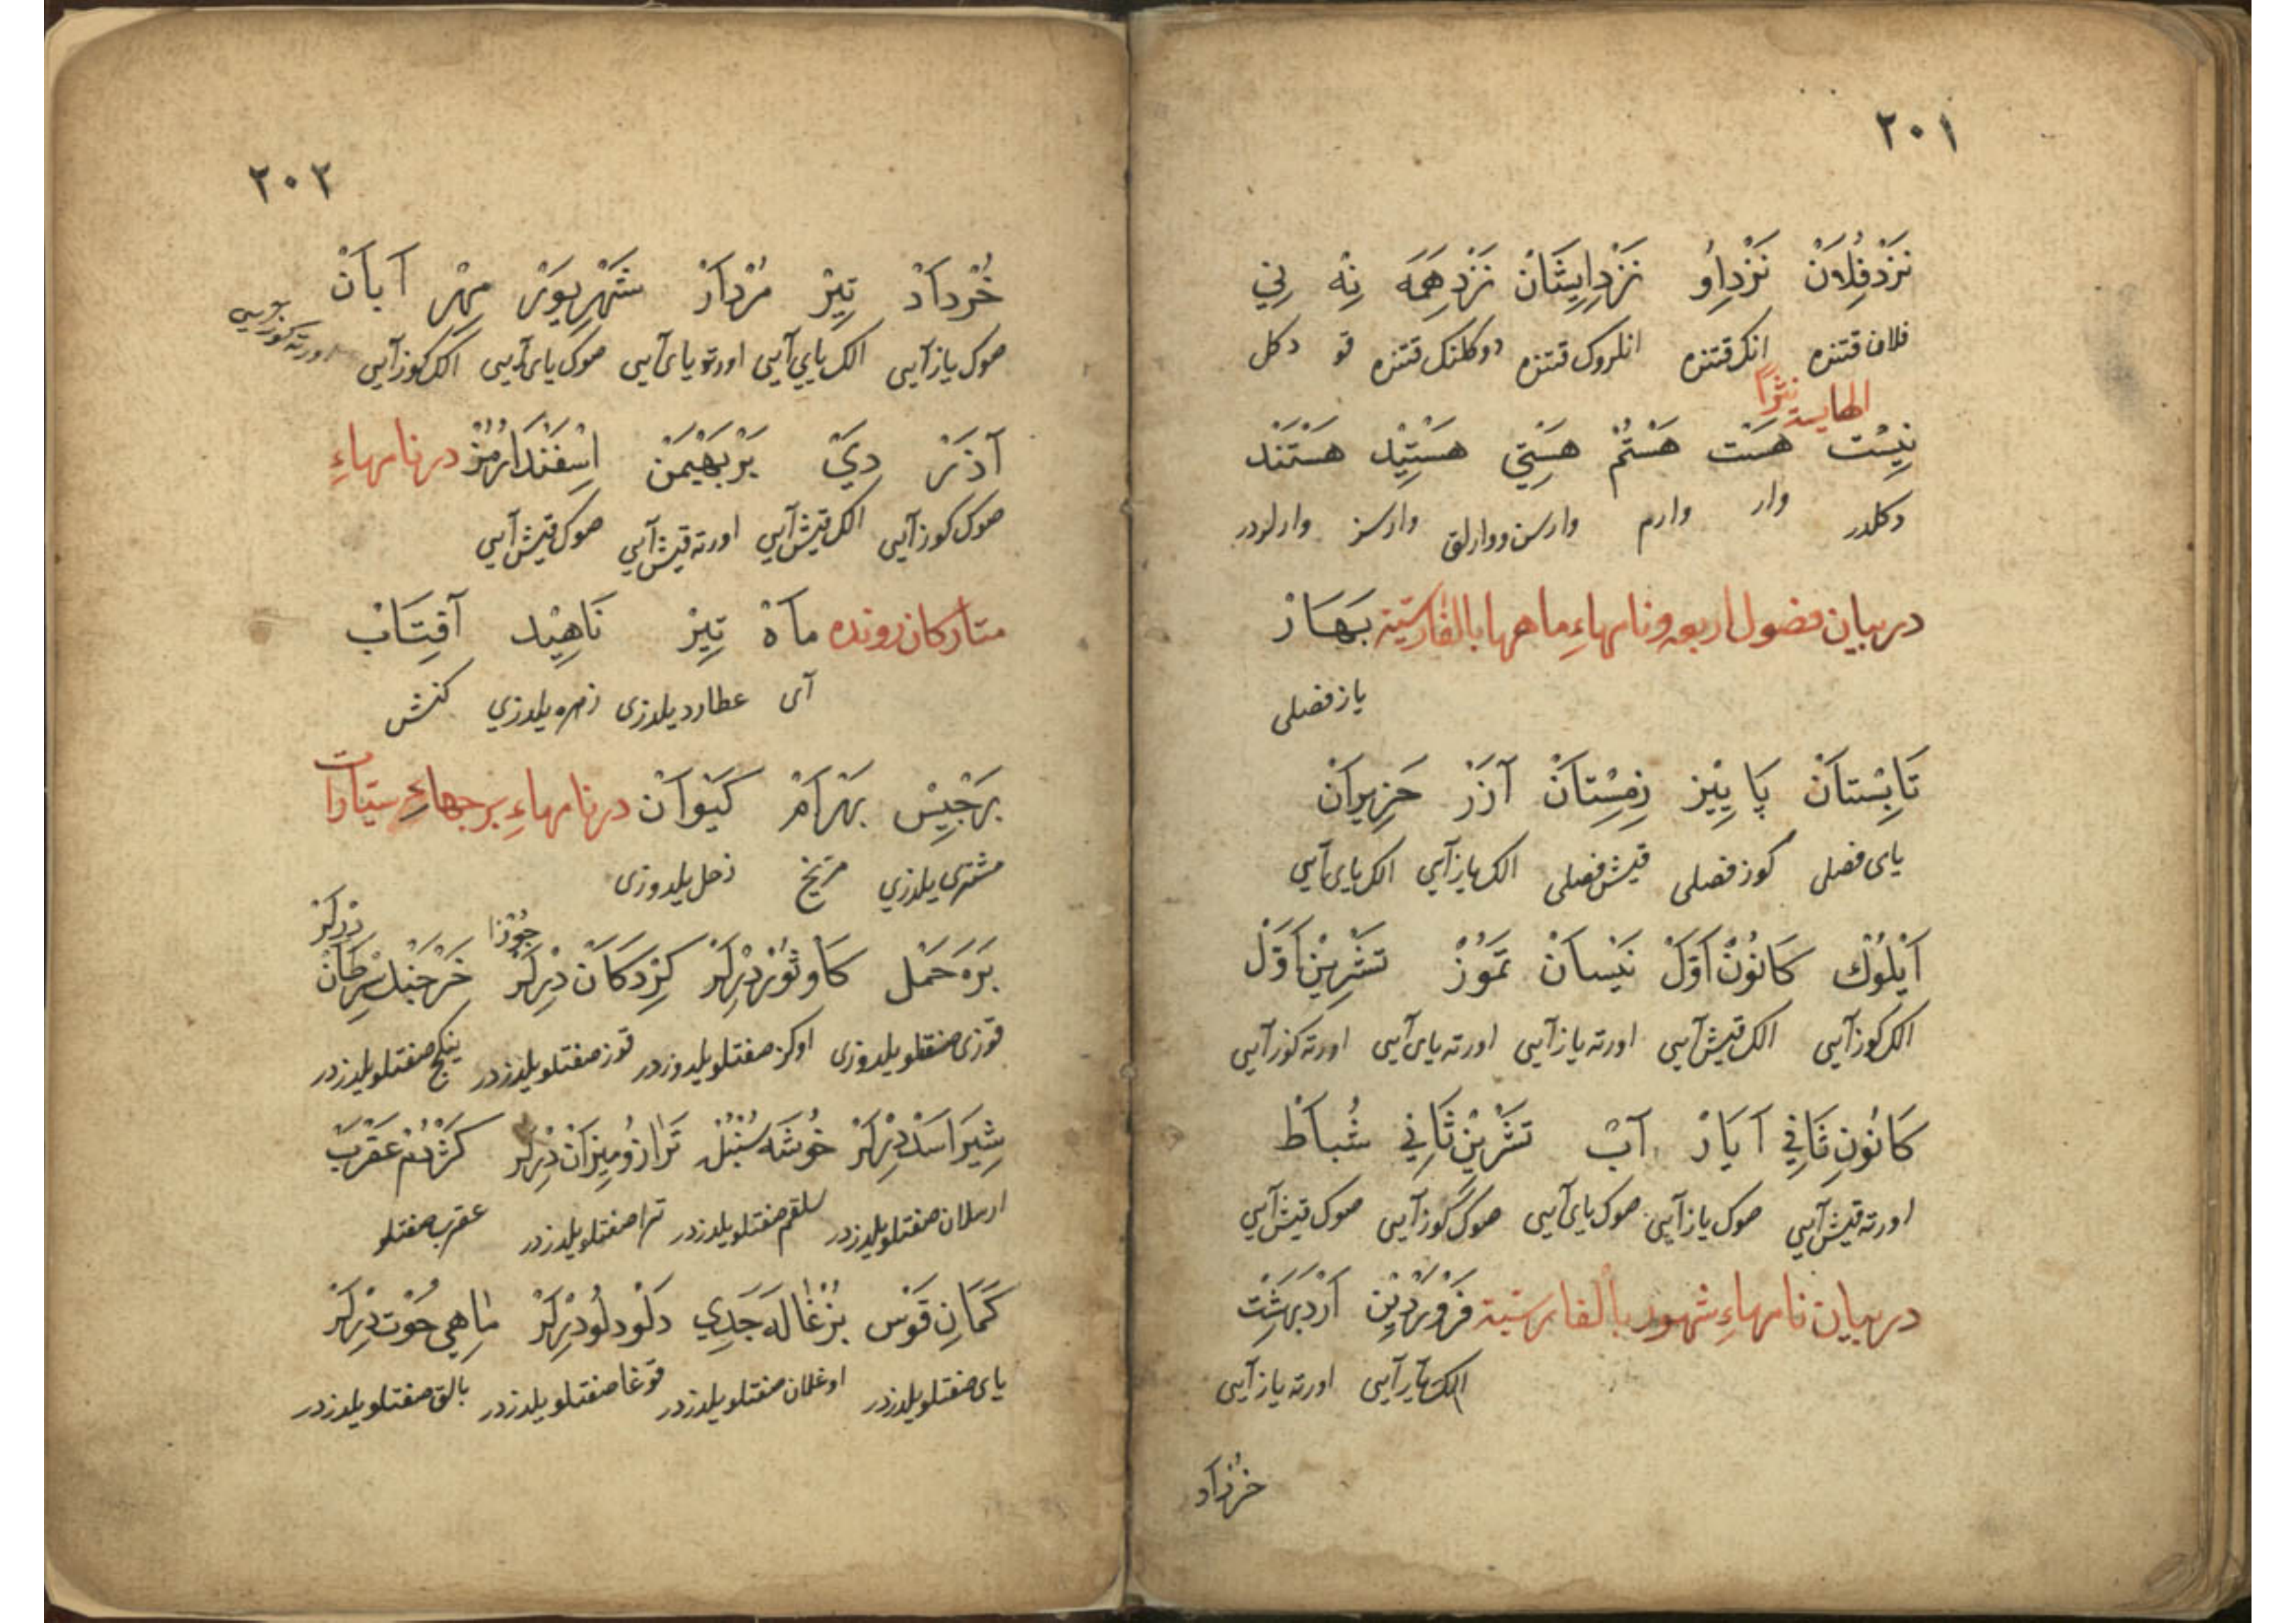 ٢٠١
نَزْدِ فُلَانْ نَزْدِ اُو نَزْدِ ايِشَانْ نَزْدِ هَمَه نِهْ نِي
فلان قتنده انک قتنده انلروک قتنده دوکلنک قتنده قو دکل
نِيسْت هَسْت هَسْتُمْ هَسْتِي هَسْتِيْد هَسْتَنْد
دکلدر وار وارم وارسن ووارلق وارسز وارلردر
در بيان فصول اربعه و نامهاءِ ماهها بالفارسيّة بَهَارْ
ياز فصلی
تَابِسْتَانْ پَايِيْز زِمِسْتَانْ آزَرْ حَزِيرَانْ
يای فصلی کوز فصلی قيش فصلی الک ياز آيی الک يای آيی
اَيْلُوْل كَانُوْنِ اَوَّلْ نَيْسَانْ تَمُوْزْ تَشْرِيْنِ اَوَّلْ
الک کوز آيی الک قيش آيی اورته ياز آيی اورته يای آيی اورته کوز آيی
كَانُونِ ثَانِي آيَارْ آبْ تَشْرِيْنِ ثَانِي شُبَاطْ
اورته قيش آيی صوک ياز آيی صوک يای آيی صوک کوز آيی صوک قيش آيی
در بيان نامهاءِ شهور بالفارسيّة فَرْوَرْدِيْن اَرْدِبِهِشْت
الک ياز آيی اورته ياز آيی
خرداد
٢٠٢
خُرْدَادْ تِيرْ مُرْدَادْ شَهْرِيوَرْ مِهْر آبَانْ
صوک ياز آيی الک يای آيی اورته يای آيی صوک يای آيی الک کوز آيی اورته کوز آيی
آذَرْ دِيْ بَرْبَهْيمَنْ اِسْفَنْدَارْمُزْ در نامهاءِ
صوک کوز آيی الک قيش آيی اورته قيش آيی صوک قيش آيی
ستارکان رونده مَاهْ تِيرْ نَاهِيْد آفِتَابْ
آی عطارد يلدزی زهره يلدزي کنش
بَرْجِيْس بَهْرَامْ كَيْوَانْ در نامهاءِ برجهاءِ سيّارات
مشتری يلدزي مريخ زحل يلدوزی
بَرَه حَمَل كَاو ثَوْر دِيْكَرْ جَوْزَا دِيْكَرْ خَرْجَنْك سَرَطَانْ دِيْكَرْ
قوزی صفتلو يلدوزی اوکز صفتلو يلدوزدر قوز صفتلو يلدزدر ينکج صفتلو يلدزدر
شِيرْ اَسَدْ دِيْكَرْ خُوشَه سُنْبُلْ تَرَازُو مِيزَانْ دِيْكَرْ كَژْدُمْ عَقْرَبْ
ارسلان صفتلو يلدزدر سلقم صفتلو يلدزدر ترا صفتلو يلدزدر عقرب صفتلو
كَمَانِ قَوْس بُزْغَالَه جَدِي دَلْو دَلُو دِيْكَرْ مَاهِي حُوْت دِيْكَرْ
يای صفتلو يلدزدر اوغلان صفتلو يلدزدر قوغا صفتلو يلدزدر بالق صفتلو يلدزدر